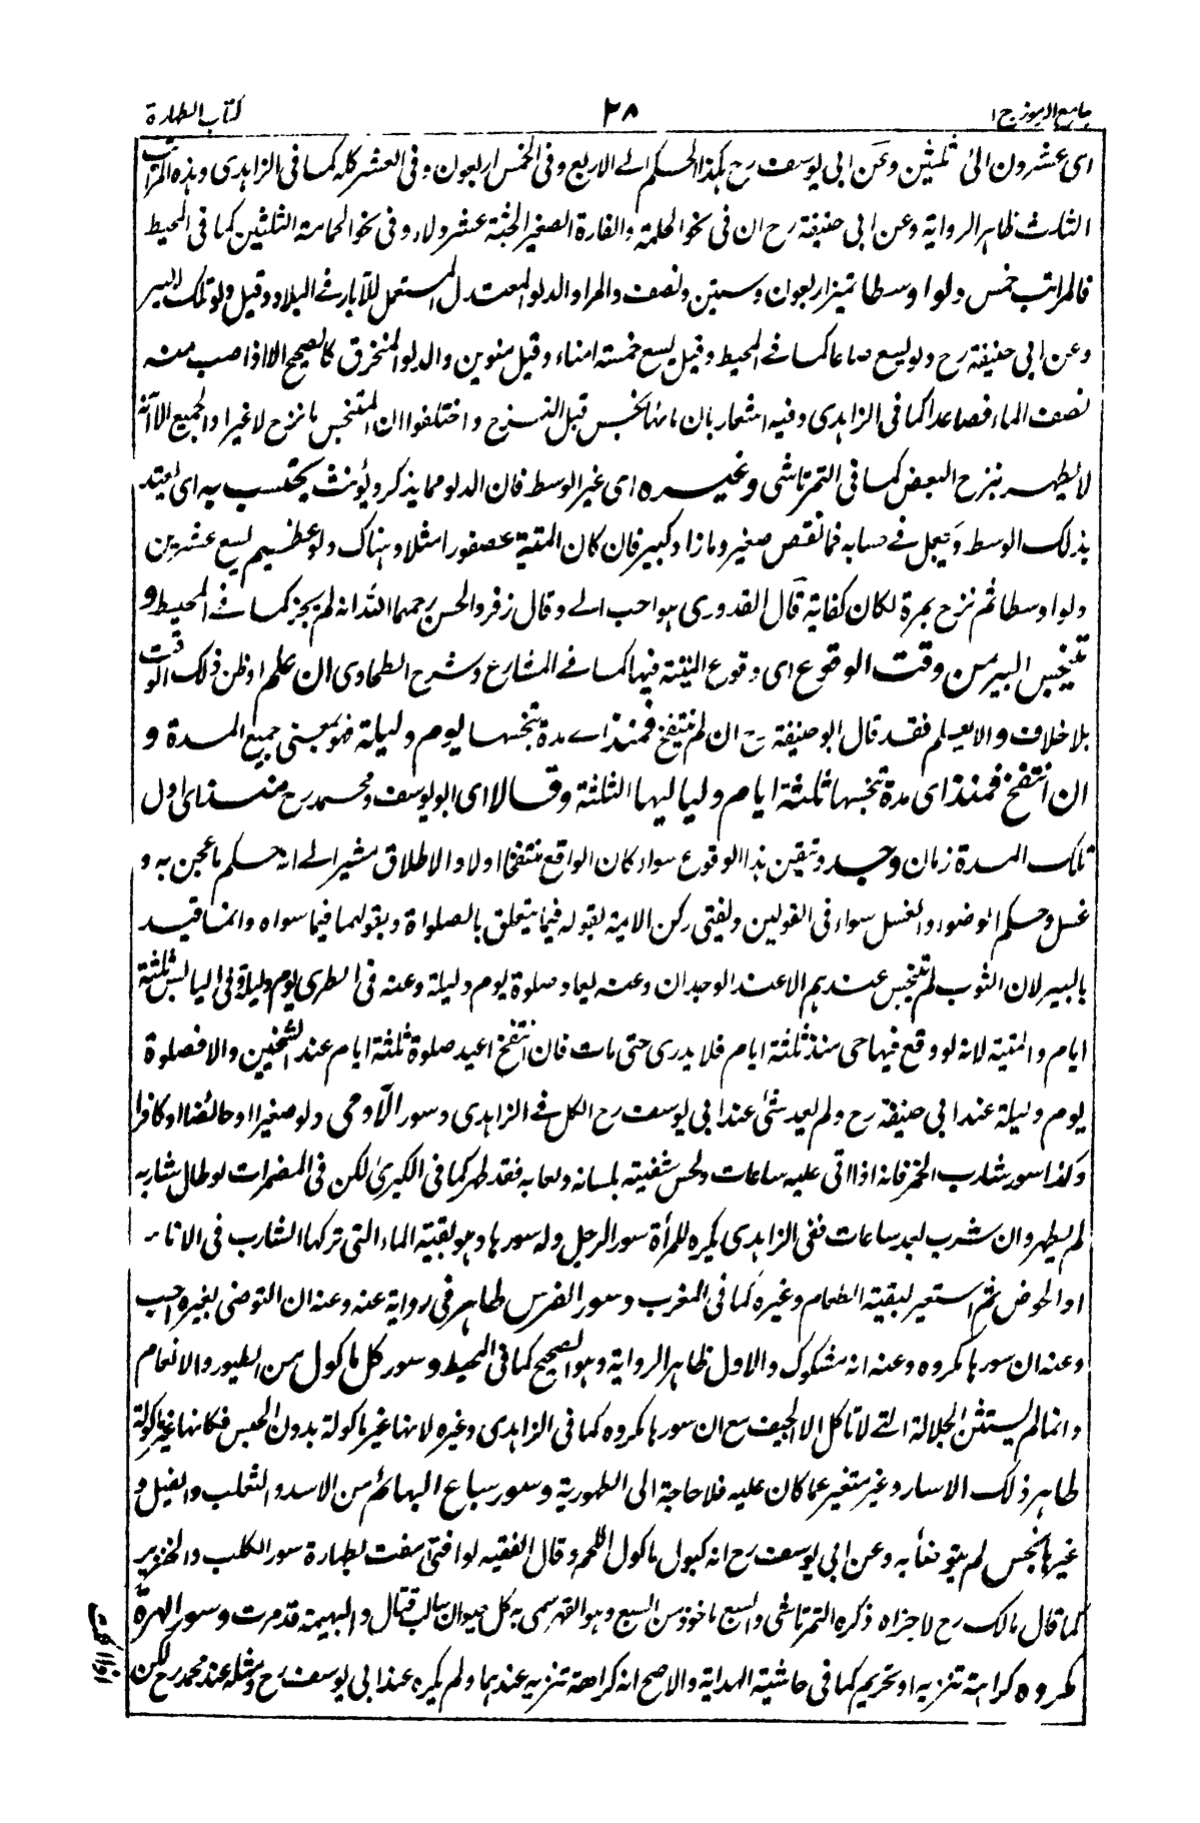 جامع الرموز ج ١
٢٨
كتاب الطهارة
اى عشرون الى ثلثين وعن ابى يوسف رح هكذا الحكم الى الاربع وفى الخمس اربعون وفى العشر كله كما فى الزاهدى وهذه المراتب
الثلث ظاهر الرواية وعن ابى حنيفة رح ان فى نحو الحلمة والفارة الصغير الجثة عشر دلاء وفى نحو الحمامة الثلثين كما فى المحيط
فالمراتب خمس دلوا وسطا تميز اربعون وستين ونصف والمراد الدلو المعتدل المستعمل للآبار فى البلاد وقيل دلو تلك البير
وعن ابى حنيفة رح دلو يسع صاعا كما فى المحيط وقيل يسع خمسة امناء وقيل منوين والدلو المنخرق كالصحيح الا اذا صب منه
نصف الماء فصاعدا كما فى الزاهدى وفيه اشعار بان ماءها نجس قبل النزح و اختلفوا ان المتنجس ما نزح لا غير او الجميع الا انه
لا يطهر بنزح البعض كما فى التمرتاشى وغيره اى غير الوسط فان الدلو مما يذكر ويؤنث يحتسب به اى يعتد
بذلك الوسط ويجعل فى حسابه فما نقص صغير وما زاد كبير فان كان الميتة عصفورا مثلا وهناك دلو عظيم يسع عشرين
دلوا وسطا ثم نزح بمرة لكان كفاية قال القدورى هو احب الى وقال زفر والحسن رحمهما الله انه لم يجز كما فى المحيط و
تنجس البير من وقت الوقوع اى وقوع الميتة فيها كما فى المشارع وشرح الطحاوى ان علم او ظن ذلك الوقت
بلا خلاف والا يعلم فقد قال ابو حنيفة رح ان لم ينتفخ فمنذ اى مدة تنجسها يوم وليلة فهو بمعنى جميع المدة و
ان انتفخ فمنذ اى مدة تنجسها ثلثة ايام ولياليها الثلثة وقالا اى ابو يوسف ومحمد رح منذ اى اول
تلك المدة زمان وجد وتيقن هذا الوقوع سواء كان الواقع منتفخا اولا والاطلاق مشير الى انه حكم ما عجن به و
غسل وحكم الوضوء والغسل سواء فى القولين ويفتى ركن الايمة بقوله فيما يتعلق بالصلواة وبقولهما فيما سواه وانما قيد
بالبير لان الثوب لم يتنجس عندهم الا عند الوجدان وعنه يعاد صلوة يوم وليلة وعنه فى الطرى يوم وليلة وفى اليابس ثلثة
ايام والميتة لانه لو وقع فيها حى منذ ثلثة ايام فلا يدرى حتى مات فان انتفخ اعيد صلوة ثلثة ايام عند الشيخين والا فصلوة
يوم وليلة عند ابى حنيفة رح ولم يعد شئ عند ابى يوسف رح الكل فى الزاهدى وسور الآدمى ولو صغيرا او حائضا او كافرا
وكذا سور شارب الخمر فانه اذا اتى عليه ساعات ولحس شفتيه بلسانه ولعابه فقد طهر كما فى الكبرى لكن فى المضمرات لو طال شاربه
لم يطهر وان شرب بعد ساعات ففى الزاهدى يكره للمرأة سور الرجل وله سورها وهو بقية الماء التى تركها الشارب فى الاناء
او الحوض ثم استعير لبقية الطعام وغيره كما فى المغرب وسور الفرس طاهر فى رواية عنه وعنه ان التوضى بغيره احب
وعنه ان سورها مكروه وعنه انه مشكوك والاول ظاهر الرواية وهو الصحيح كما فى المحيط وسور كل ماكول من الطيور والانعام
وانما لم يستثن الجلالة التى لا تاكل الا الجيف مع ان سورها مكروه كما فى الزاهدى وغيره لانها غير ماكولة بدون الحبس فكانها غير ماكولة
طاهر ذلك الاسار وغير متغير عما كان عليه فلا حاجة الى الطهورية وسور سباع البهائم من الاسد والثعلب والفيل و
غيرها نجس لم يتوضأ به وعن ابى يوسف رح انه كبول ماكول اللحم وقال الفقيه لو افتى مفت بطهارة سور الكلب والخنزير
كما قال مالك رح لاجزاه ذكره التمرتاشى والسبع ماخوذ من السبع وهو القهر سمى به كل حيوان سالب قتال والبهيمة قد مرت وسور الهرة
مكروه كراهة تنزيه او تحريم كما فى حاشية الهداية والاصح انه كراهة تنزيه عندهما ولم يكره عند ابى يوسف رح ومثله عند محمد رح لكن